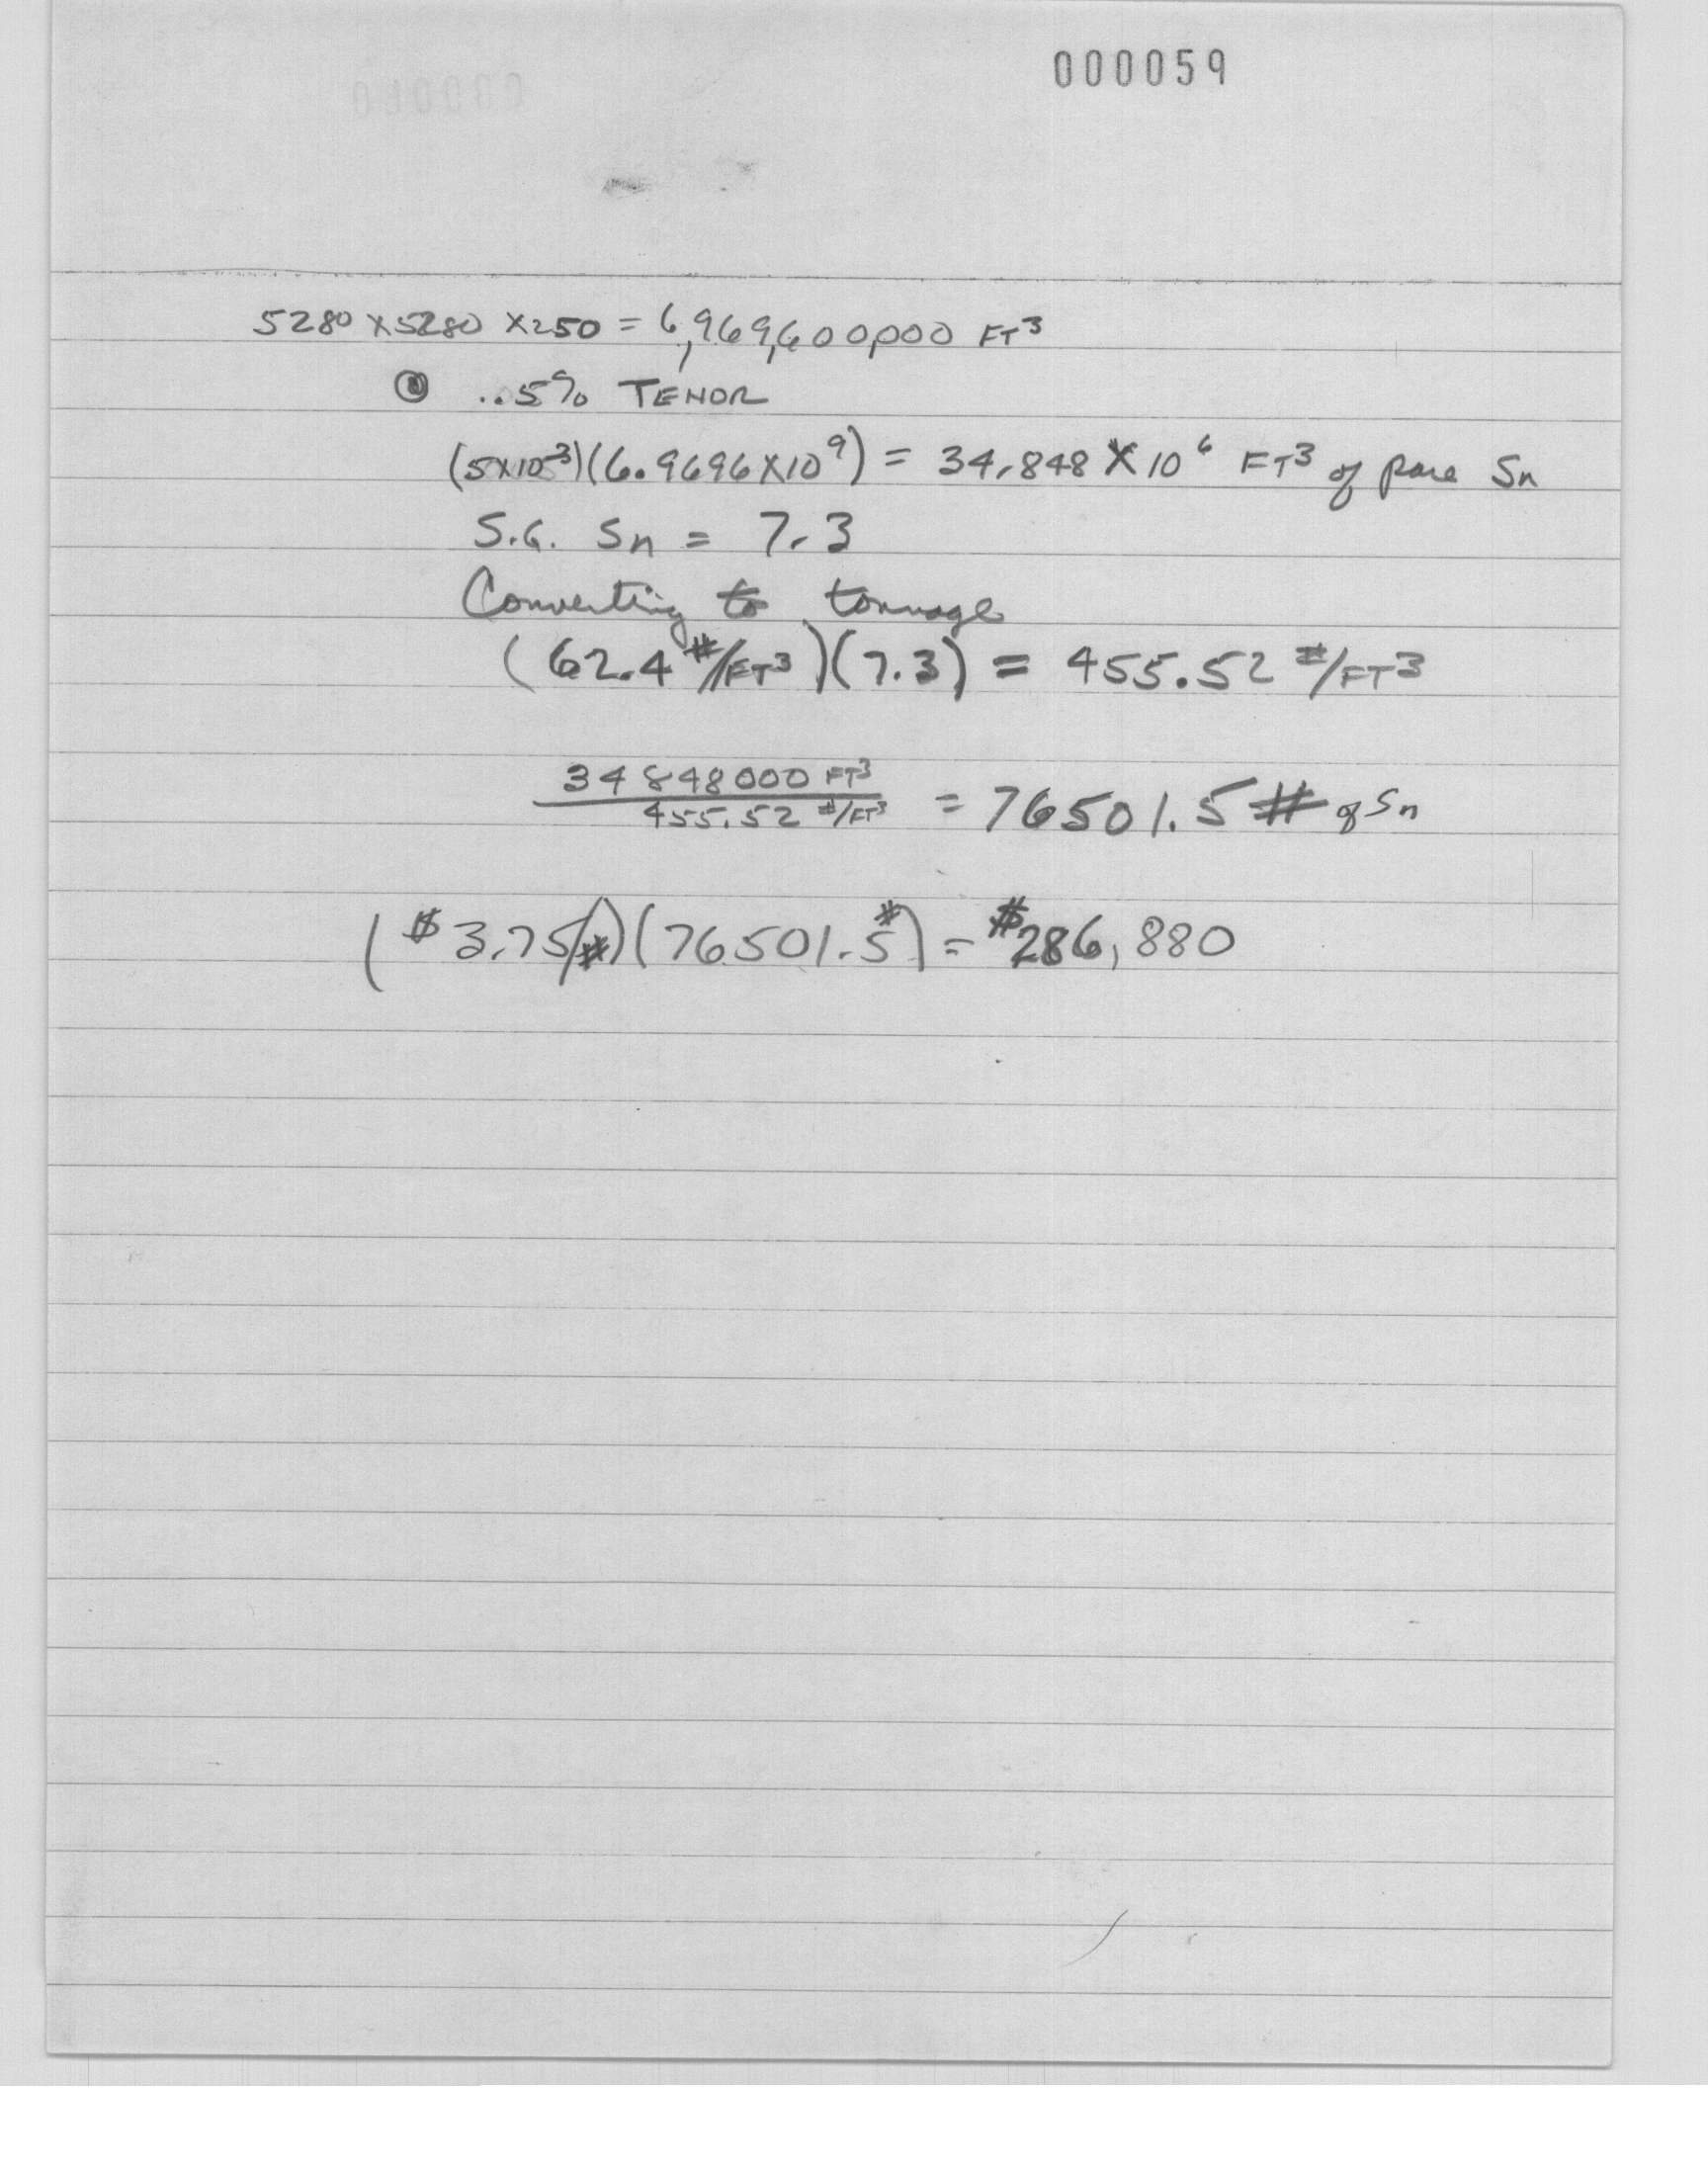 000059
5280 x 5280 x 250 = 6,969,600,000 FT³
@ ..5% TENOR
(5x10⁻³)(6.9696x10⁹) = 34.848 x 10⁶ FT³ of pure Sn
S.G. Sn = 7.3
Converting to tonnage
(62.4 #/FT³)(7.3) = 455.52 #/FT³
34848000 FT³
455.52 #/FT³ = 76501.5 # of Sn
($3.75/#)(76501.5#) = $286,880